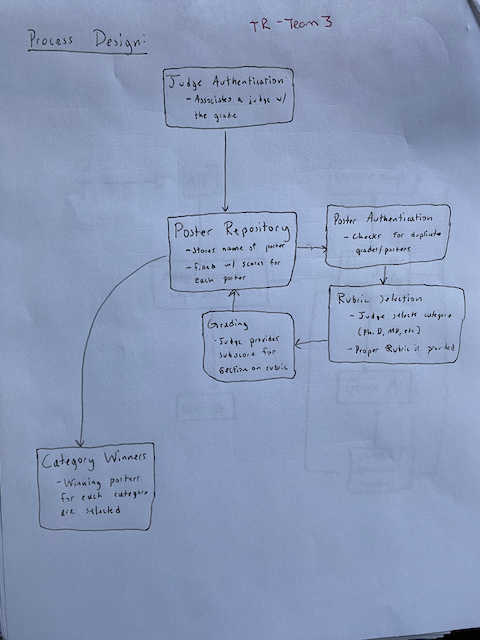 TR - Team 3
Process Design:
Judge Authentication:
- Associates a judge w/
the grade
Poster Repository
- Stores name of poster
- fixed w/ scores for
each poster
Poster Authentication
- Checks for duplicate
grades/posters
Rubric Selection
- Judge selects category
(Ph.D, MD, etc)
- Proper Rubric is provided
Grading
- Judge provides
subscore for
section on rubric
Category Winners
- Winning posters
for each category
are selected